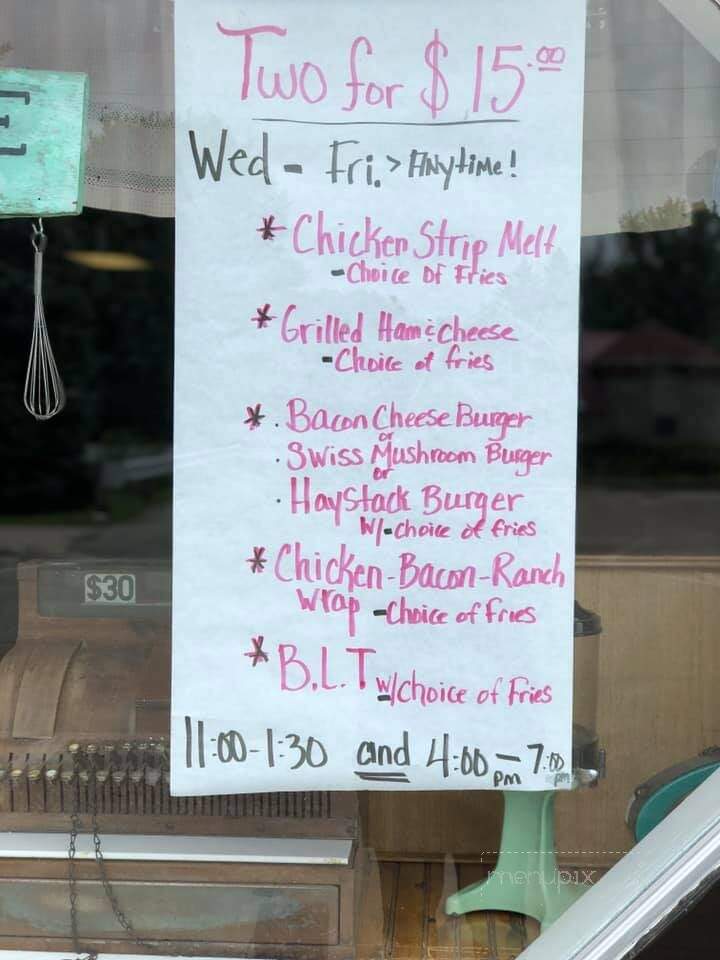 Two for $15.00
Wed - Fri. > Anytime!
* Chicken Strip Melt
-Choice Of Fries
* Grilled Ham & cheese
-Choice of fries
* . Bacon Cheese Burger
or
. Swiss Mushroom Burger
or
. Haystack Burger
W/-choice of fries
* Chicken-Bacon-Ranch
wrap -Choice of fries
* B.L.T w/choice of Fries
11:00-1:30 and 4:00 pm - 7:00 pm
$30
menupix